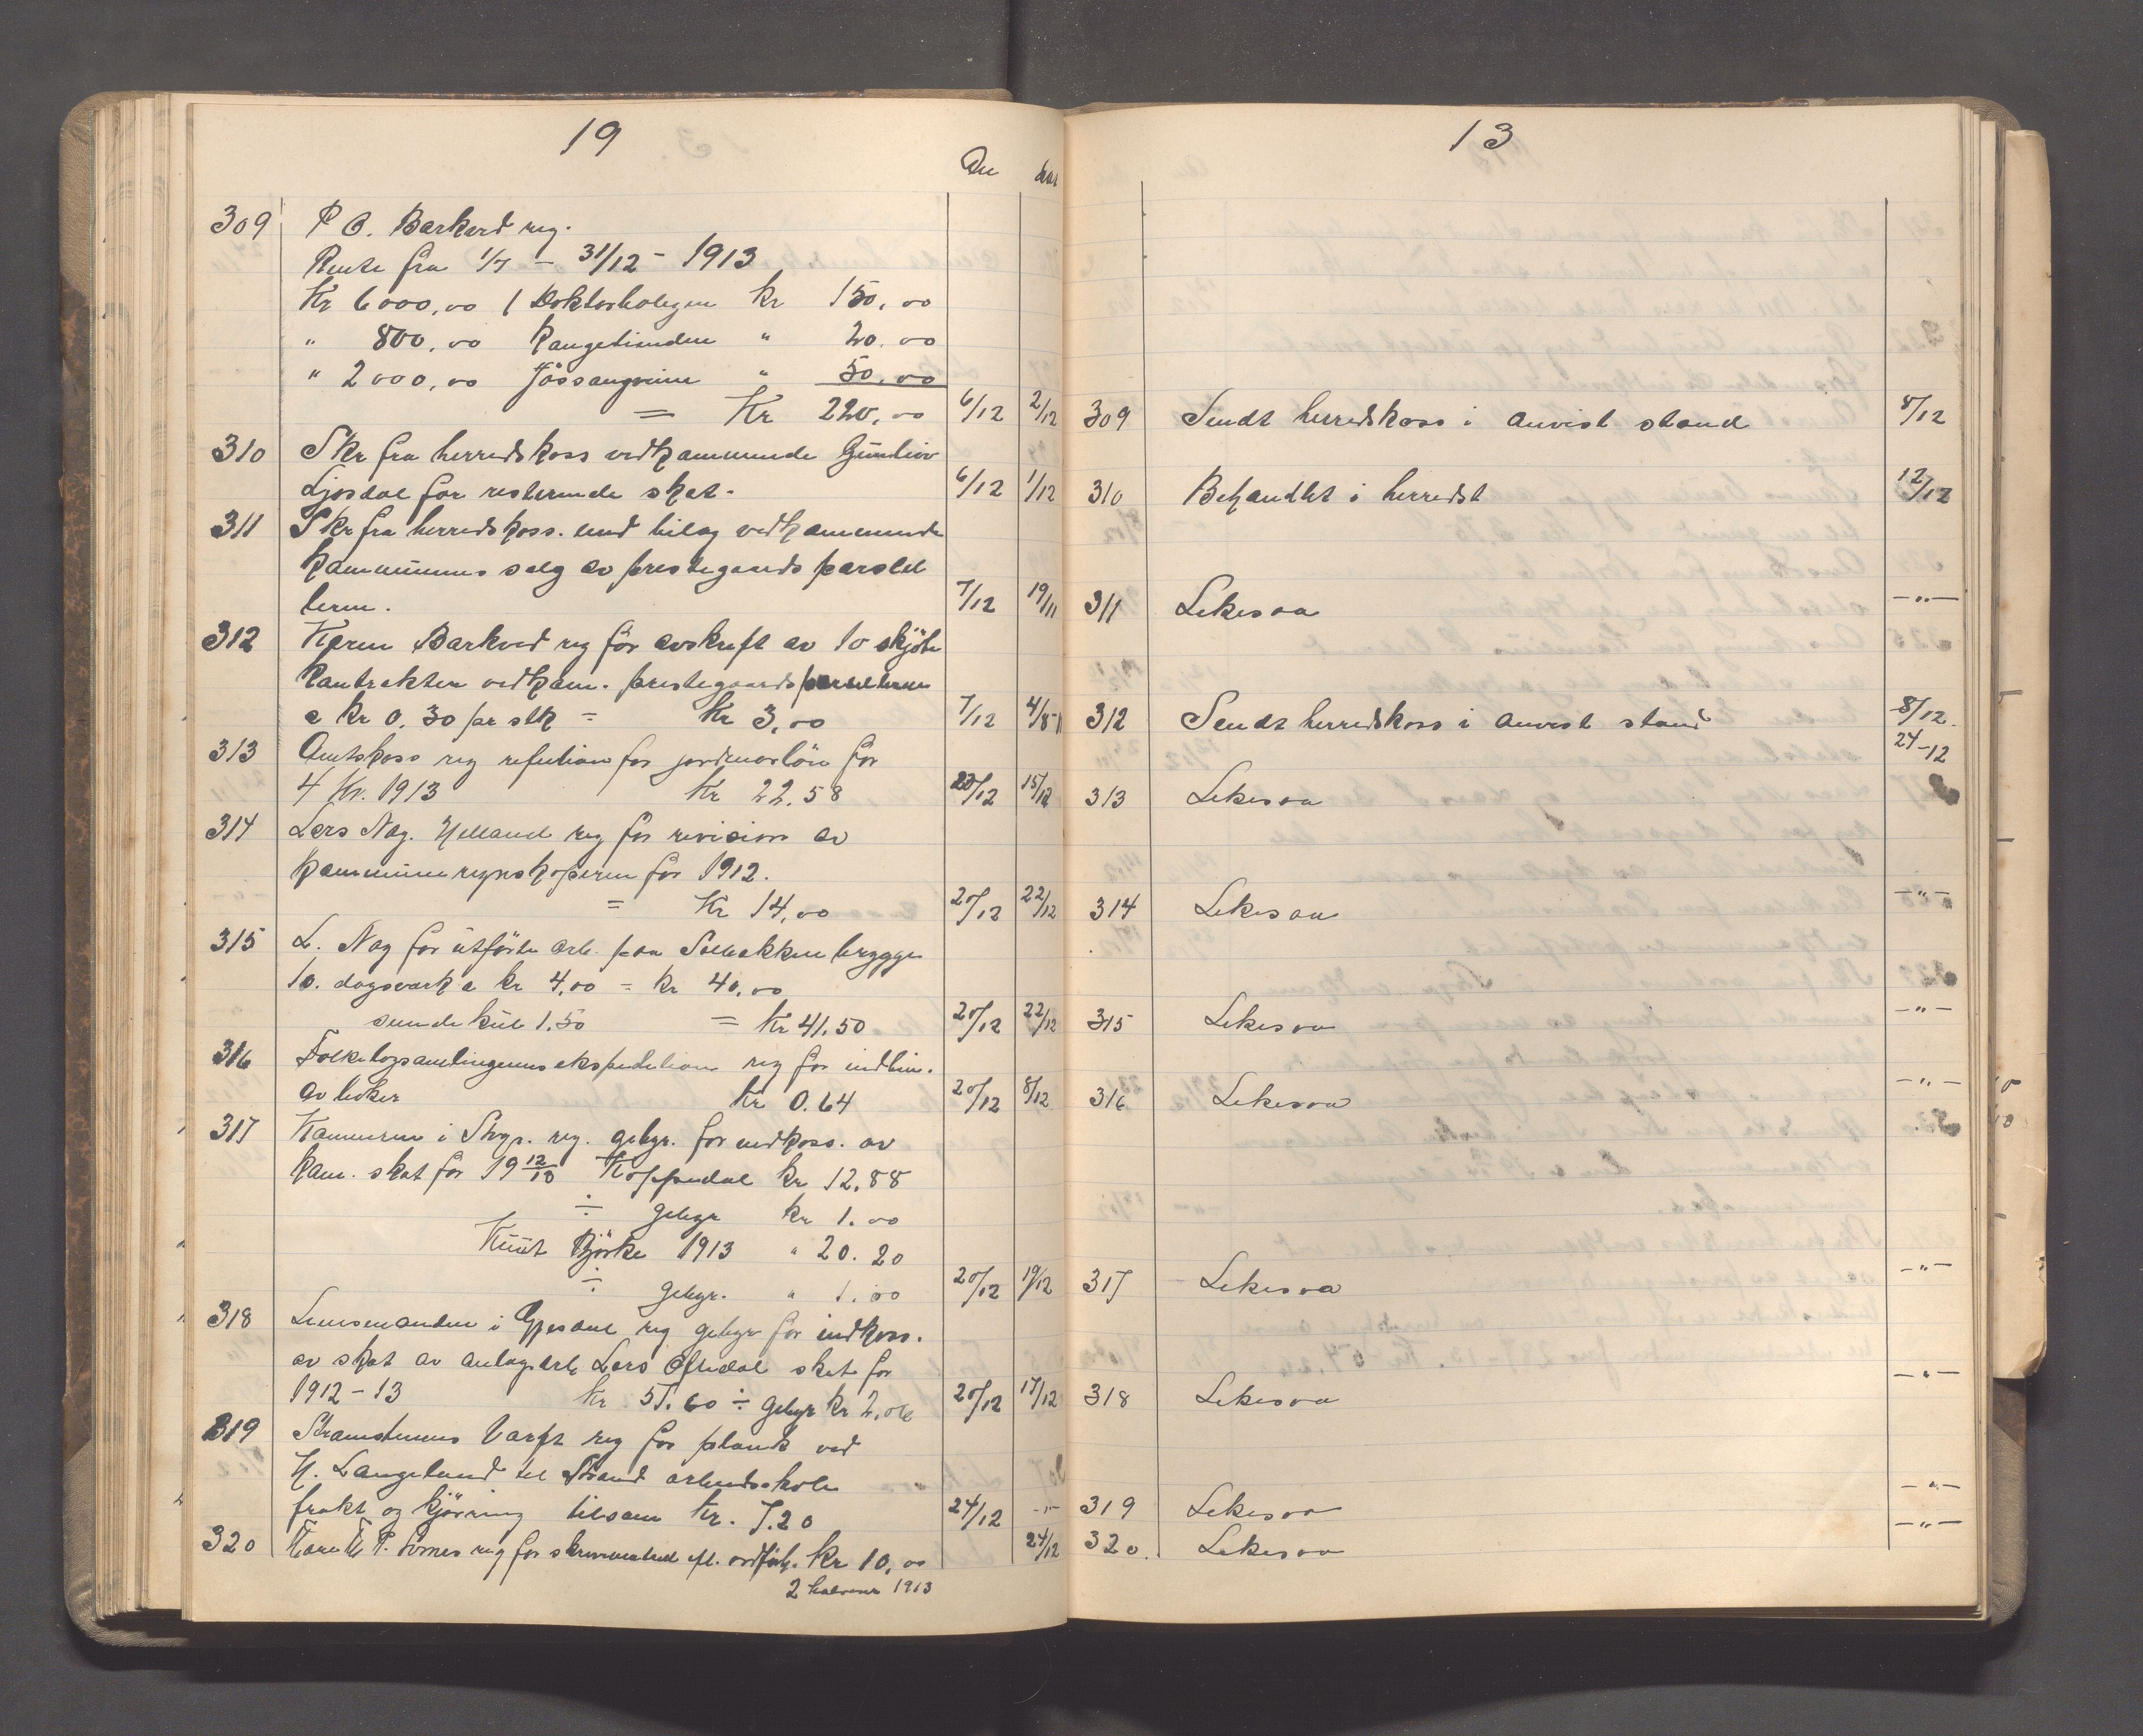 19
309 P O. Barkved reg.
Rente fra 1/7 - 31/12 - 1913
Kr 6000,00 Doktorboligen kr 150,00
" 800,00 " 20.00
" 2000,00 Jössangveien " 50,00
= Kr 220,00 6/12 2/12
310 Skr fra herredskass vedkommende
for resterende skat. 6/12 1/12
311 Skr fra herredskass. med bilag vedkommende
kommunens salg av prestegaards parsel
lerne. 7/12 19/11
312 Karen Barkved reg for avskrift av 10 skjöte
kontrakter vedkom. prestegaardsparsellerne
a kr 0,30 pr stk = Kr 3,00 7/12
313 Amtskass reg refution for jordmorlön for
4 Kv. 1913 Kr 22.58 15/12
314 Lars Nag. Helland reg for revision av
kommuneregnskaperne for 1912.
= Kr 14,00 20/12 22/12
315 L. Nag for utförte arb. paa Solbakken brygge
10. dagsverk a kr 4,00 = kr 40,00
1.50 = Kr 41.50 20/12 22/12
316 ekspedition reg for indbin.
av böker Kr 0.64 20/12 8/12
317 Kemneren i Stvgr. reg. gebyr. for indkass. av
kom. skat for 19 12/13 Koppedal kr 12.88
÷ gebyr kr 1.00
Knut Björke 1913 " 20.20
÷ gebyr. " 1.00 20/12 19/12
318 Lensmanden i Gjesdal reg gebyr for indkass.
av skat av anlægsarb Lars skat for
1912-13 Kr 57.60 ÷ gebyr kr 20/12 17/12
319 reg for plank ved
H. Langeland til Strand arbeidsskole
frakt og kjöring tilsam Kr. 7.20 24/12 -"-
320 reg for Kr 10,00 24/12
2 halvaar 1913
13
309 Sendt herredskass i anvist stand 8/12
310 Behandlet i herredst 12/12
311 Likesaa -"-
312 Sendt herredskass i anvist stand 8/12
24-12
313 Likesaa
314 Likesaa -"-
315 Likesaa -"-
316 Likesaa -"-
317 Likesaa -"-
318 Likesaa -"-
319 Likesaa -"-
320. Likesaa -"-